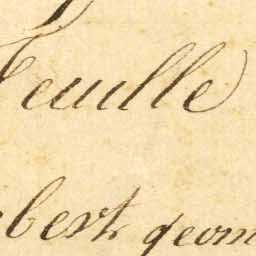 Feuille
bert geom